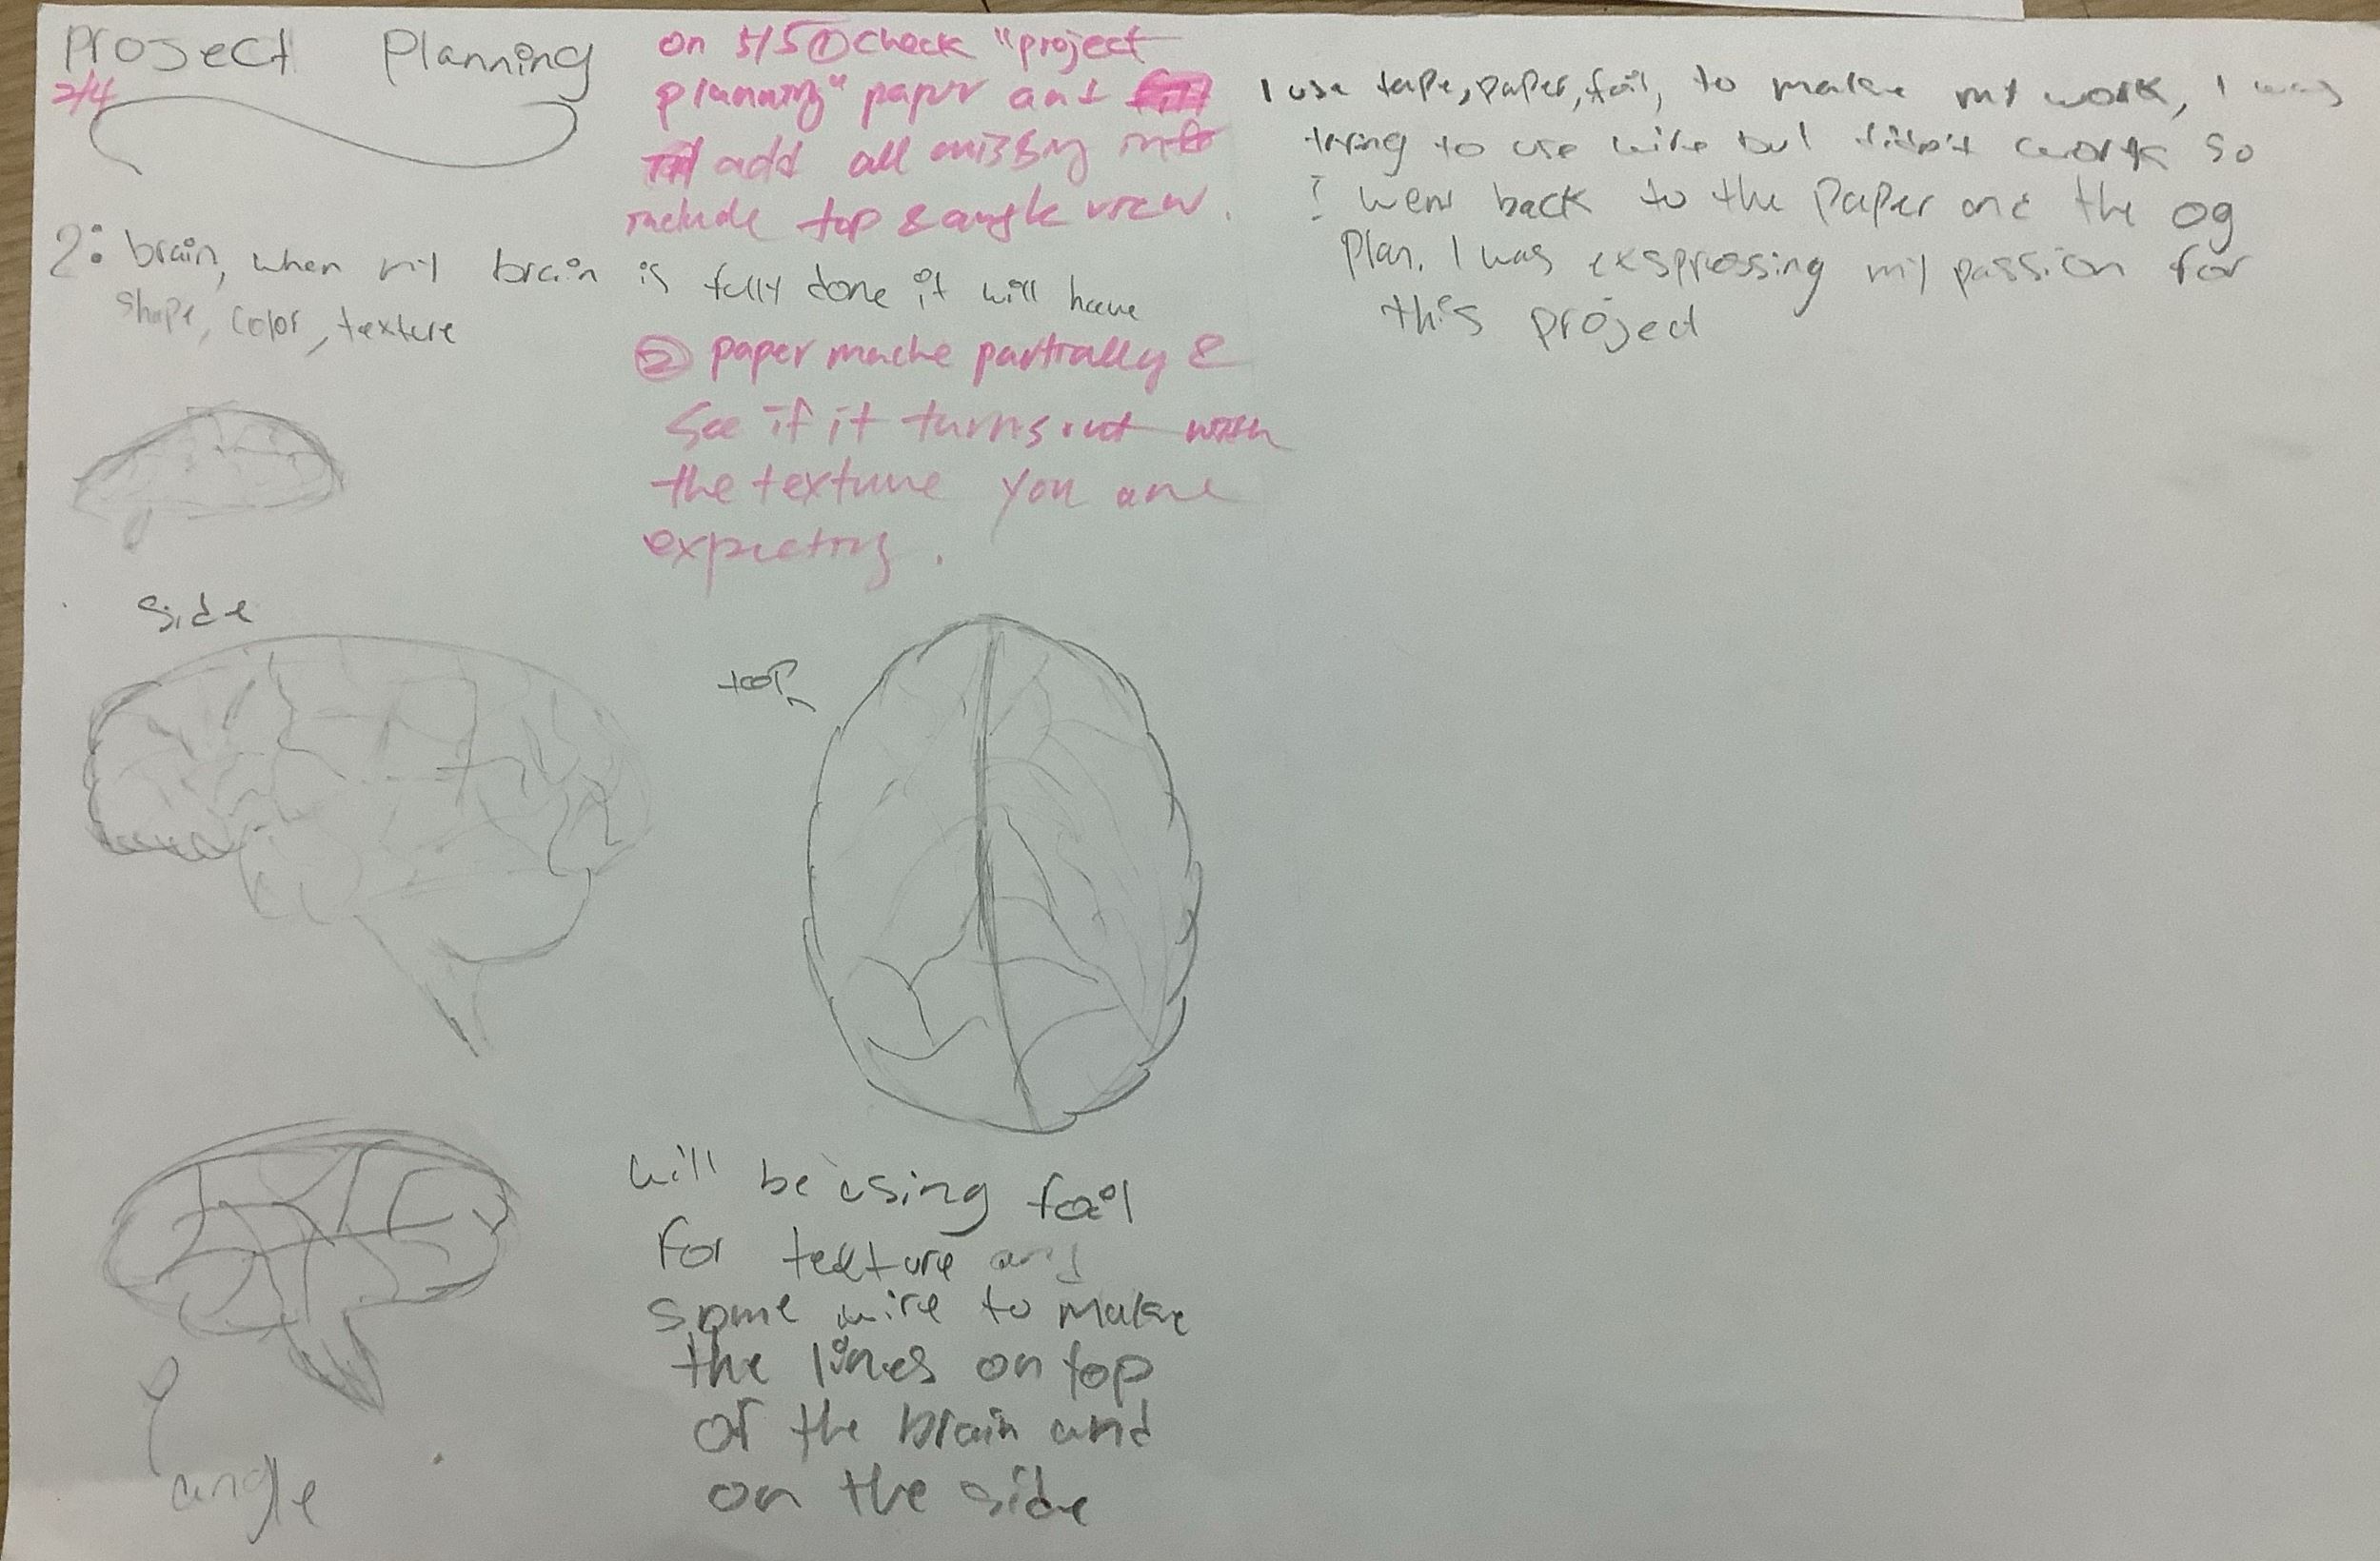 Project Planning
2/4
on 3/5 ① check "project
planning" paper and
add all missing info
include top & angle view.
2: brain, when my brain is fully done it will have
shape, color, texture
② paper mache partially &
see if it turns out with
the texture you are
expecting.
I use tape, paper, foil, to make my work, I was
trying to use wire but didn't work so
I went back to the paper and the og
plan. I was exspressing my passion for
this project
side
top
will be using foil
for texture and
some wire to make
the lines on top
of the brain and
on the side
angle